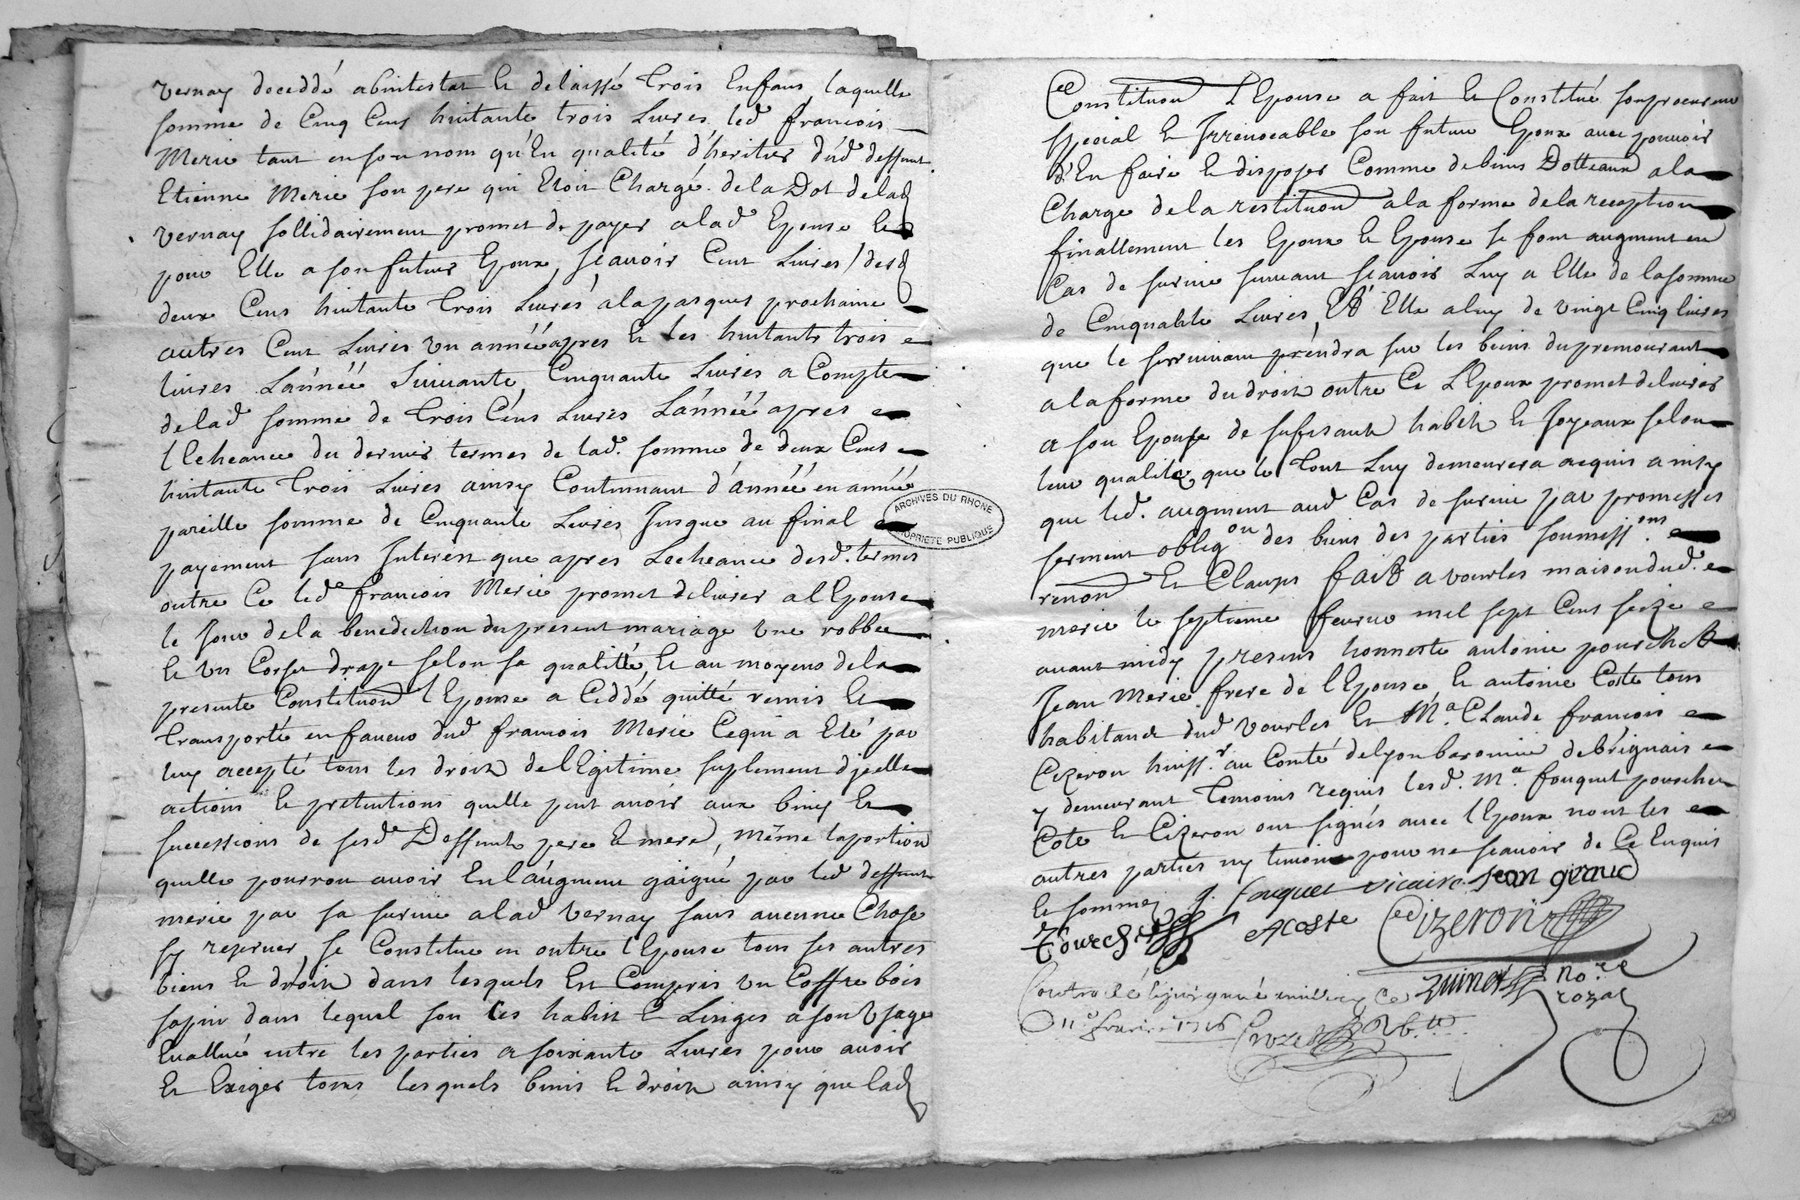 Vernay deceddé abintestat & delaissé trois Enfans, laquelle
somme de Cinq Cens huitante trois Livres, led. francois
Merie tant en son nom qu'En qualité d'heritier dud. deffunt
Etienne Merie son pere qui Etoit Chargé de la Dot de lad.
Vernay sollidairement promet de payer a lad. Epouse &
pour Elle a son futur Epoux, scavoir Cent Livres desd.
deux Cens huitante trois Livres a la pasques prochaine
autres Cent Livres un année apres & les huitante trois
livres L'année suivante, Cinquante Livres a Compte
de lad. somme de trois Cens Livres L'année apres
l'Echeance du dernier termes de lad. somme de deux Cens
huitante trois Livres ainsy Continuant d'année en année
pareille somme de Cinquante Livres Jusque au final
payement sans Interest que apres Lecheance desd. termes
outre Ce led. francois Merie promet delivrer a l'Epouse
le Jour de la benediction du present mariage une robbe
& un Corset drap selon sa qualitté, & au moyens de la
presente Constitution l'Epouse a Ceddé quitté remis &
transporté en faveur dud. francois Merie Cequi a Eté par
luy accepté tous les droits de legitime suplement d'jcelle
actions & pretentions quelle peut avoir aux biens &
successions de sesd. Deffunts pere & mere, même la portion
quelle pourroit avoir En l'augment gaigné par led. deffunt
merie par sa survie a lad. Vernay sans aucune Chose
sy reserver, se Constitue en outre l'Epouse tous ses autres
biens & droits dans lesquels Est Compris un Coffre bois
sapin dans lequel son ses habits & Linges a son usage
Evallué entre les parties a soixante Livres pour avoir
& Exiger tous lesquels biens & droits ainsy que lad.
Constitution L'Epouse a fait & Constitué son procureur
special & Irrevocable son futur Epoux avec pouvoir
d'En faire & disposer Comme de biens Dotteaux a la
Charge de la restitution a la forme de la reception
finallement les Epoux & Epouse se font augment en
Cas de survie suivant scavoir Luy a Elle de la somme
de Cinquante Livres, Et Elle a luy de vingt Cinq livres
que le survivant prendra sur les biens du premourant
a la forme du droit outre Ce L'Epoux promet delivrer
a son Epouse de sufisants habits & Joyeaux selon
leur qualité que le tout Luy demeurera acquis ainsy
que led. augment aud. Cas de survie par promesses
serment obligon des biens des parties soumissions
renon & Clauses fait a vourles maison dud.
merie le septieme fevrier mil sept Cens seize
avant midy presens honneste antoine pourchet
Jean Merie frere de l'Epouse & antoine Coste tous
habitans dud. vourles & Me. Claude francois
Cizeron huissr. au Comté de lyon baronnie de brignais
y demeurant temoins requis lesd. Me. fouquet pourchet
Coste & Cizeron ont signés avec l'Epoux non les
autres parties ny temoins pour ne scavoir de Ce Enquis
& sommez J. fouquet vicaire Jean giraud
Pourchet A Coste Cizeron
Zuinet nore
rozal
Controllé
11e fevrier 1716 Cruzet
ARCHIVES DU RHONE
PROPRIETE PUBLIQUE